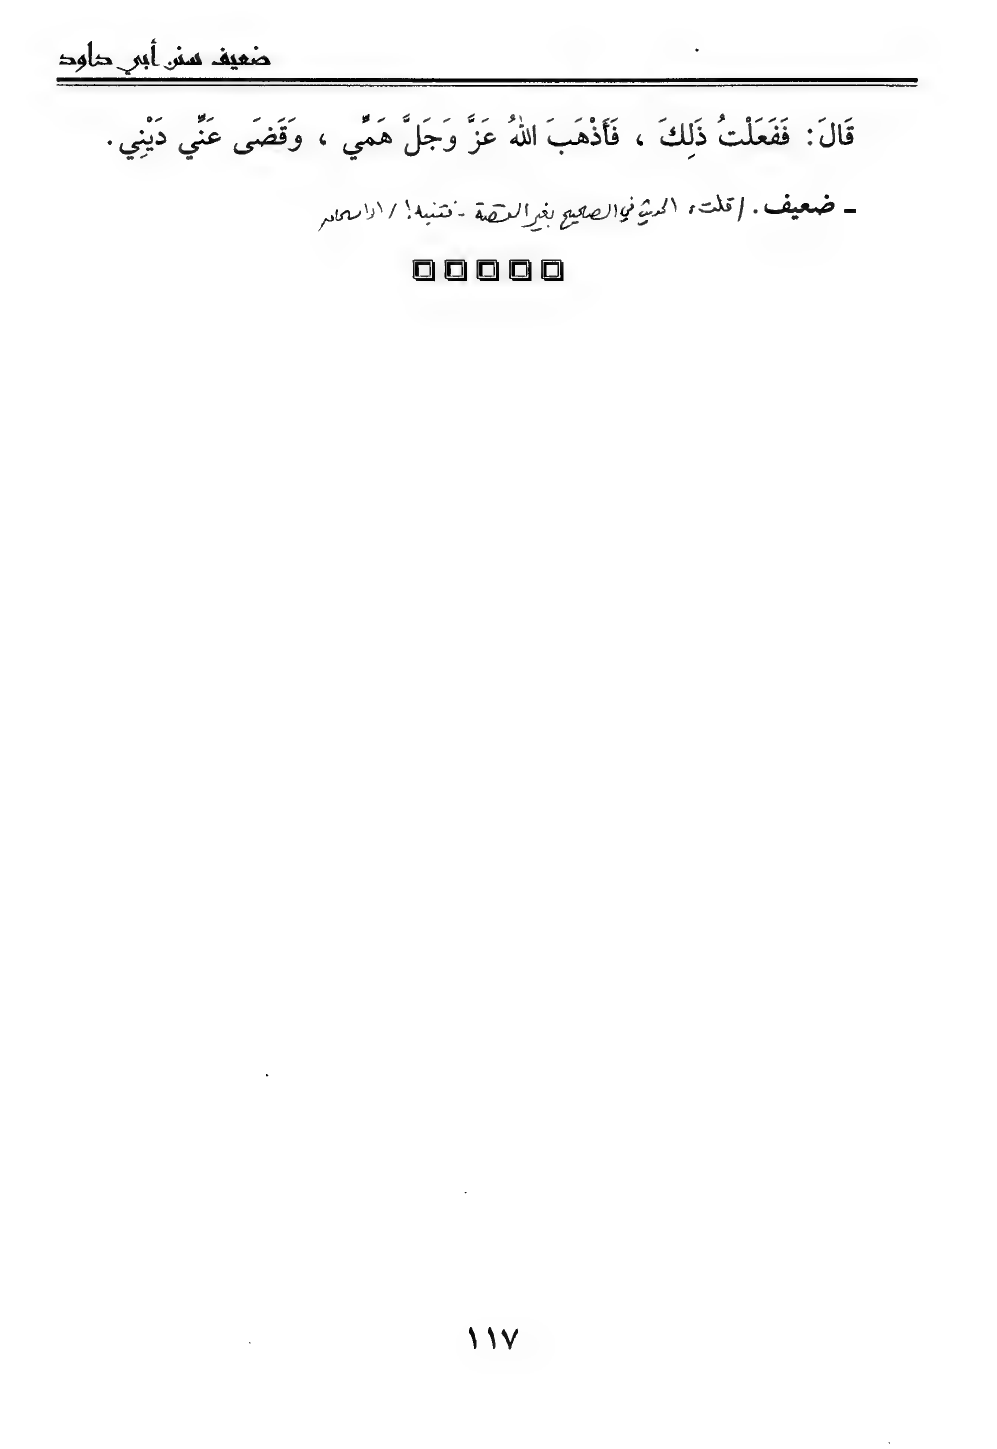 ضعيف سنن أبي داود
قَالَ: فَفَعَلْتُ ذَلِكَ ، فَأَذْهَبَ اللهُ عَزَّ وَجَلَّ هَمِّي ، وَقَضَى عَنِّي دَيْنِي.
ـ ضعيف. / قلت: الحديث في الصحيح بغير القصة - فتنبه! /
١١٧